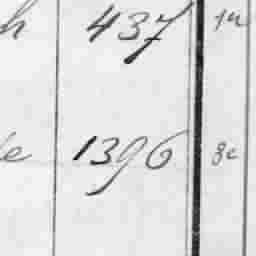 h 437 1u
le 1396 8c